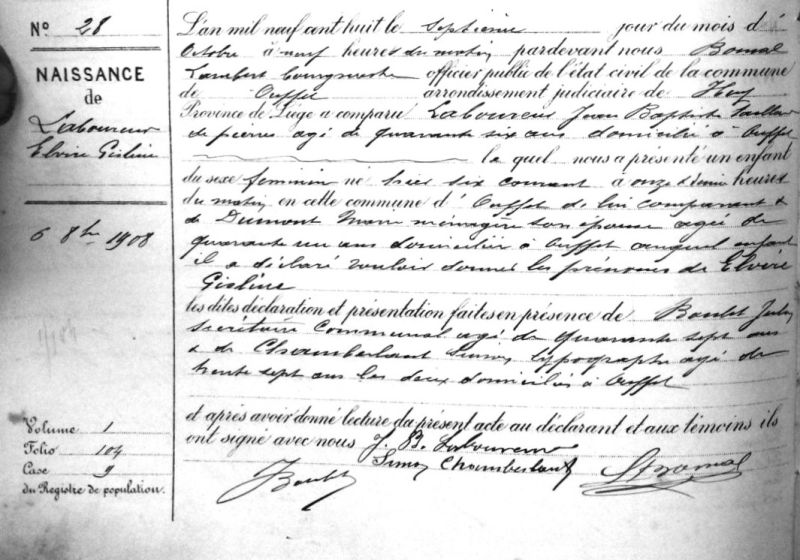 N° 28
NAISSANCE
de
Laboureur
Elvire Gisline
6 8bre 1908
Volume 1
Folio 104
Case 9
du Registre de population.
L'An mil neuf cent huit le septième jour du mois d'
Octobre à neuf heures du matin, pardevant nous Bonal
Lambert bourgmestre officier public de l'état civil de la commune
de Ouffet arrondissement judiciaire de Huy
Province de Liége a comparu Laboureur Jean Baptiste tailleur
de pierres agé de quarante six ans domicilié à Ouffet
le quel nous a présenté un enfant
du sexe féminin né hier six courant à onze & demie heures
du matin, en cette commune d'Ouffet de lui comparant &
de Dumont Marie ménagère son épouse agée de
quarante un ans domiciliée à Ouffet auquel enfant
il a déclaré vouloir donner les prénoms de Elvire
Gisline
les dites déclaration et présentation faites en présence de Boulet Jules
secrétaire communal agé de quarante sept ans
& de Chamberlant Simon, typographe agé de
trente sept ans les deux domiciliés à Ouffet
et après avoir donné lecture du présent acte au déclarant et aux témoins ils
ont signé avec nous J. B. Laboureur
Simon Chamberlant
JBoulet